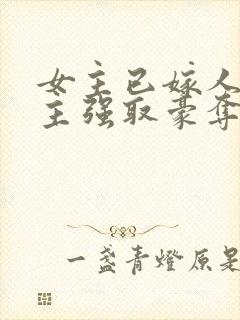 女主已嫁人
主强取豪夺
一盏青燈原是